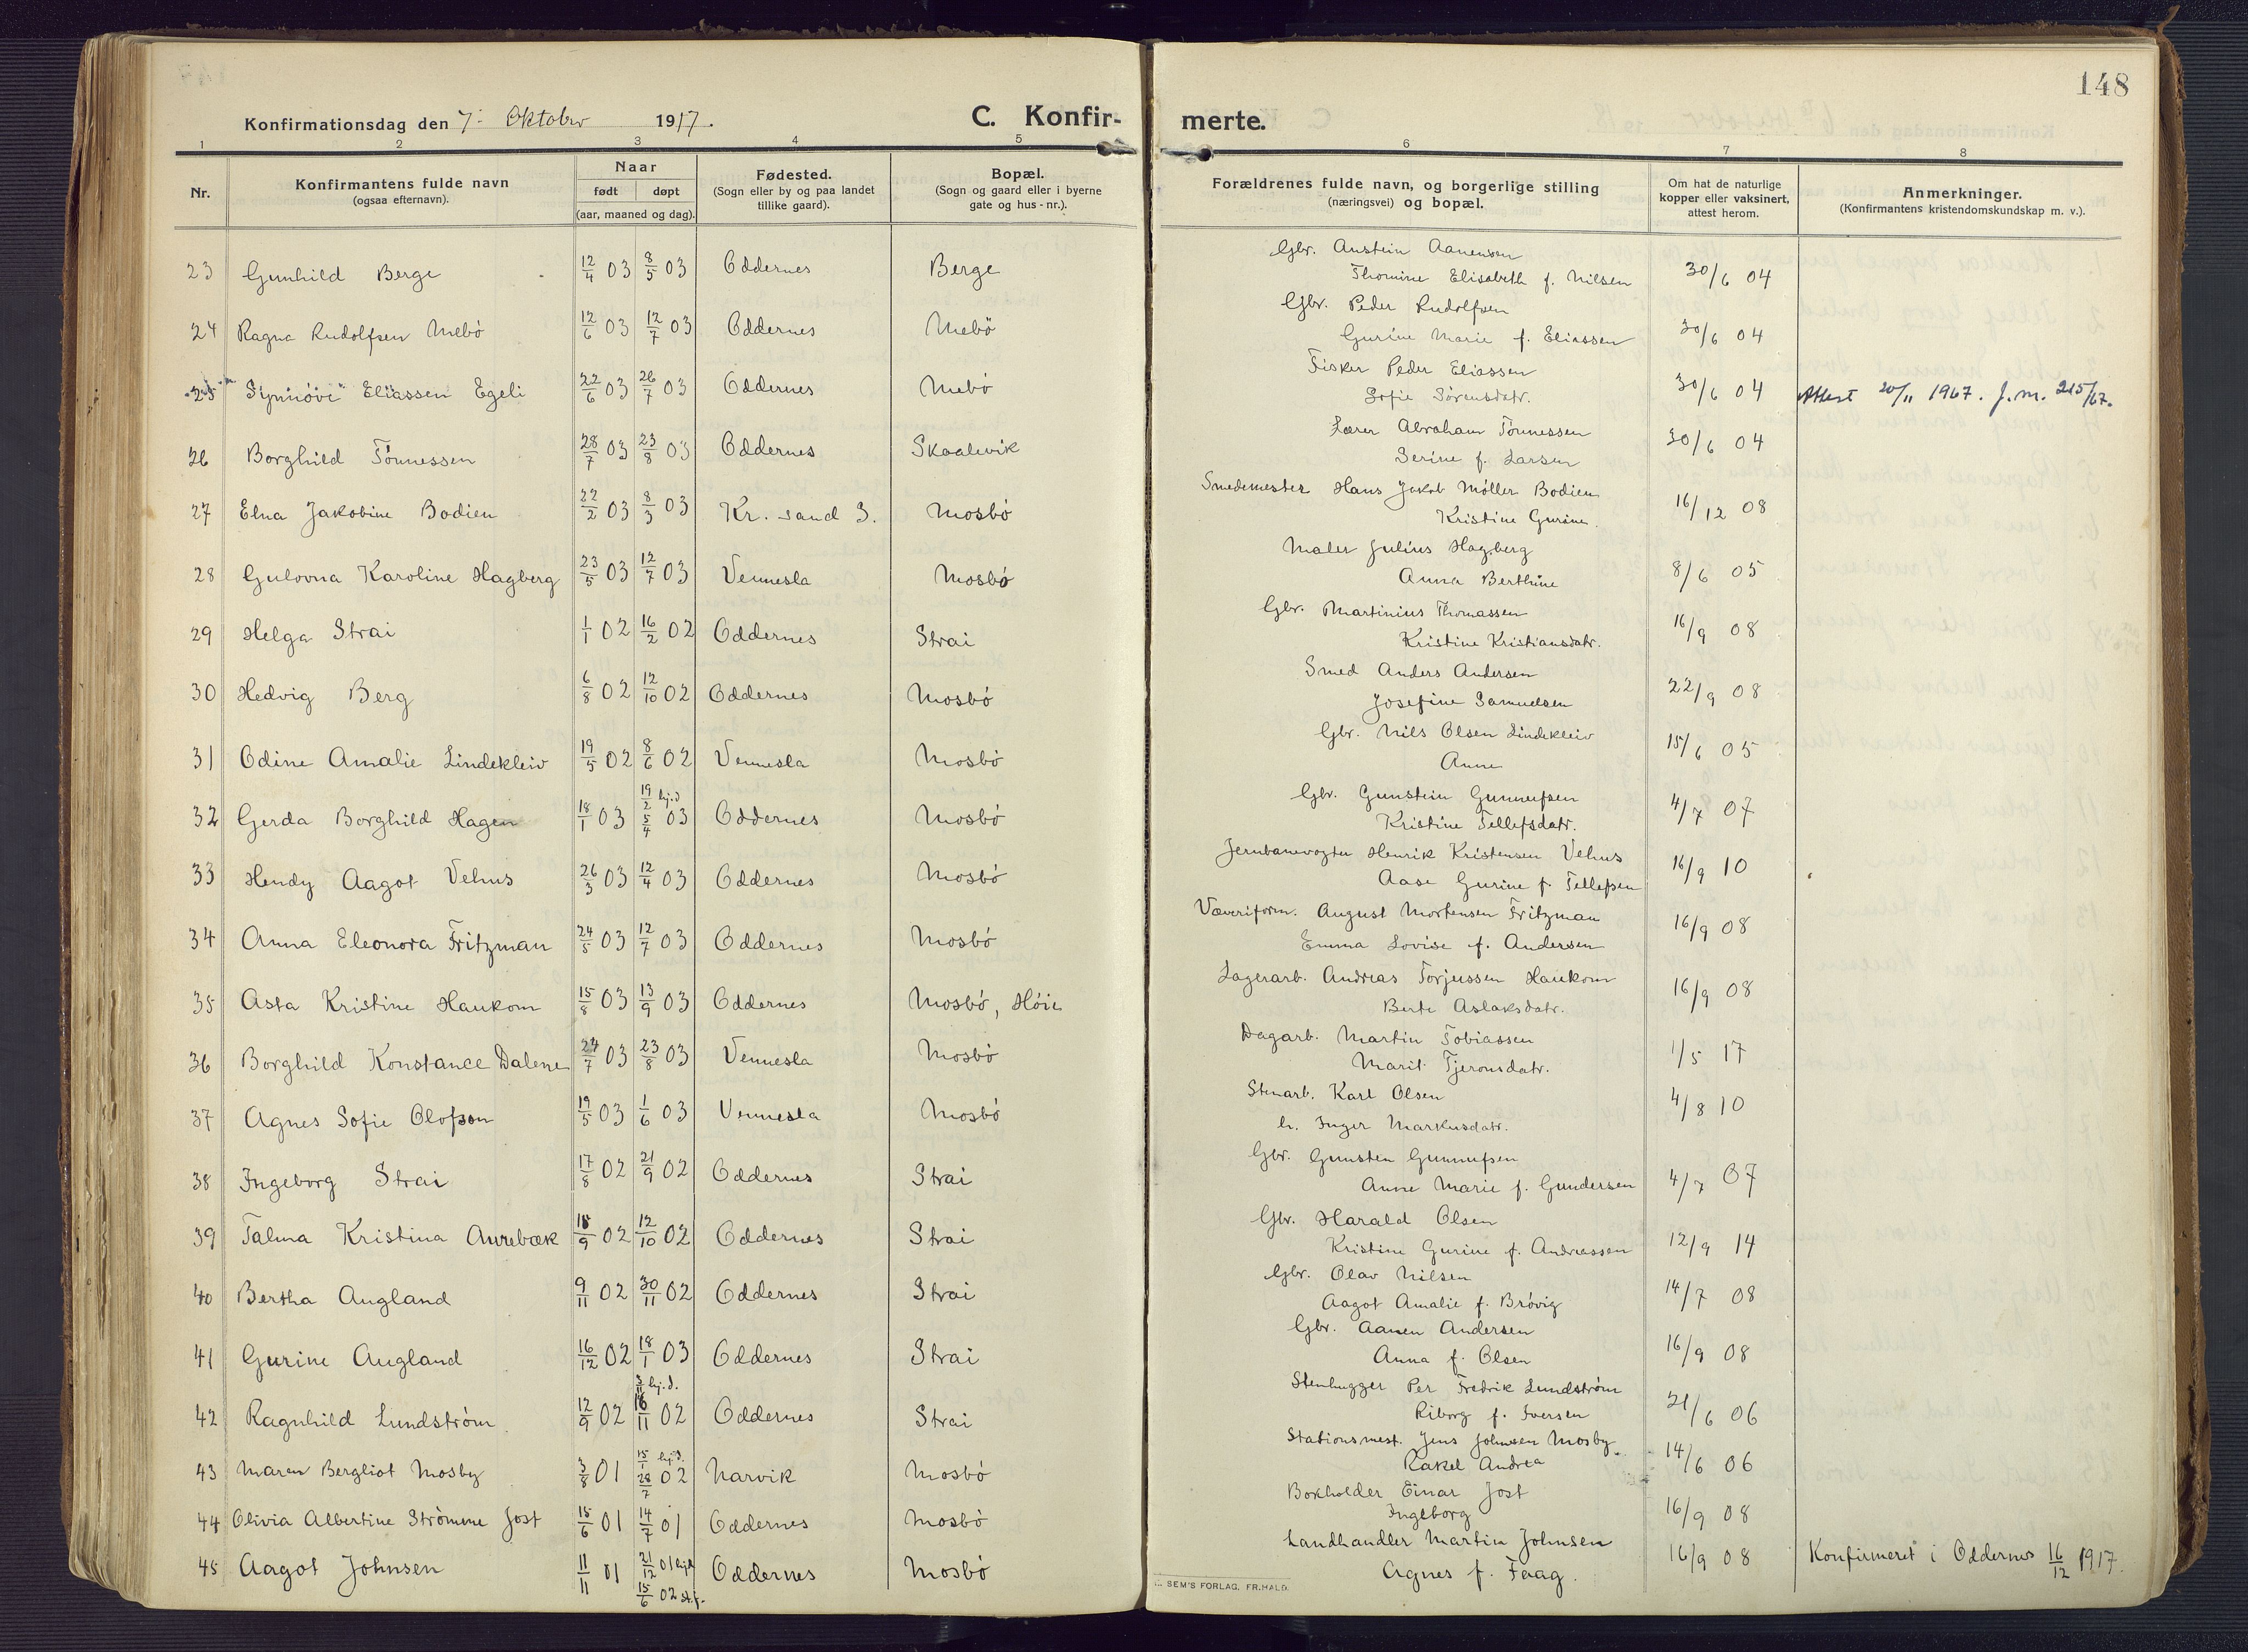 148
Konfirmationsdag den 7. Oktober 1917.
C. Konfirmerte.
1 2 3 4 5 6 7 8
Nr. | Konfirmantens fulde navn (ogsaa efternavn). | Naar født døpt (aar, maaned og dag). | Fødested. (Sogn eller by og paa landet tillike gaard). | Bopæl. (Sogn og gaard eller i byerne gate og hus-nr.). | Forældrenes fulde navn, og borgerlige stilling (næringsvei) og bopæl. | Om hat de naturlige kopper eller vaksinert, attest herom. | Anmerkninger. (Konfirmantens kristendomskundskap m. v.).
23 Gunhild Berge 12/4 03 8/5 03 Oddernes Berge Gbr. Anstein Aanensen
Thomine Elisabeth f. Nilsen 30/6 04
24 Ragna Rudolfsen Mebö 12/6 03 12/7 03 Oddernes Mebö Gbr. Peder Rudolfsen
Gurine Marie f. Eliassen 30/6 04
25 Synnöve Eliassen Egeli 22/6 03 26/7 03 Oddernes Mebö Fisker Peder Eliassen
Sofie Sörensdatr. 30/6 04 Attest 20/11 1967. J.nr. 215/67.
26 Borghild Tönnessen 28/7 03 23/8 03 Oddernes Skaalevik Lærer Abraham Tönnessen
Serine f. Larsen 30/6 04
27 Elna Jakobine Bodien 22/2 03 8/3 03 Kr. sand S. Mosbö Smedemester Hans Jakob Möller Bodien
Kristine Gurine. 16/12 08
28 Gulovna Karoline Hagberg 23/5 03 12/7 03 Vennesla Mosbö Maler Julius Hagberg
Anna Berthine 8/6 05
29 Helga Strai 1/1 02 16/2 02 Oddernes Strai Gbr. Martinius Thomassen
Kristine Kristiansdatr. 16/9 08
30 Hedvig Berg 6/8 02 12/10 02 Oddernes Mosbö Smed Anders Andersen
Josefine Samuelsen 22/9 08
31 Odine Amalie Lindekleiv 19/5 02 8/6 02 Vennesla Mosbö Gbr. Nils Olsen Lindekleiv
Anne 15/6 05
32 Gerda Borghild Hagen 18/1 03 19/2 hj.d 5/4 03 Oddernes Mosbö Gbr. Gunstein Gunnufsen
Kristine Tellefsdatr. 4/7 07
33 Hendy Aagot Vehus 26/3 03 12/4 03 Oddernes Mosbö Jernbanevogter Henrik Kristensen Vehus
Aase Gurine f. Tellefsen 16/9 10
34 Anna Eleonora Fritzman 24/5 03 12/7 03 Oddernes Mosbö Væveriform. August Mortensen Fritzman
Emma Lovise f. Andersen 16/9 08
35 Asta Kristine Haukom 15/8 03 13/9 03 Oddernes Mosbö, Höie Lagerarb. Andreas Torjussen Haukom
Berte Aslaksdatr. 16/9 08
36 Borghild Konstance Dalene 24/7 03 23/8 03 Vennesla Mosbö Dagarb. Martin Tobiassen
Marit Tjeronsdatr. 1/5 17
37 Agnes Sofie Olofsson 19/5 03 1/6 03 Vennesla Mosbö Stenarb. Karl Olsen
h. Inger Markusdatr. 4/8 10
38 Ingeborg Strai 17/8 02 21/9 02 Oddernes Strai Gbr. Gunsten Gunnufsen
Anne Marie f. Gundersen 4/7 07
39 Talma Kristina Aurebæk 18/9 02 12/10 02 Oddernes Strai Gbr. Harald Olsen
Kristine Gurine f. Andreassen 12/9 14
40 Bertha Augland 9/11 02 30/11 02 Oddernes Strai Gbr. Olav Nilsen
Aagot Amalie f. Brövig 14/7 08
41 Gurine Augland 16/12 02 18/1 03 Oddernes Strai Gbr. Aanen Andersen
Anna f. Olsen 16/9 08
42 Ragnhild Lundström 12/9 02 3/11 hj.d. 16/11 02 Oddernes Strai Stenhugger Per Fredrik Lundström
Riborg f. Iversen 21/6 06
43 Maren Bergliot Mosby 3/8 01 15/1 hj.d. 28/7 02 Narvik Mosbö Stationsmest. Jens Johnsen Mosby
Rakel Andrea 14/6 06
44 Olivia Albertine Strömme Jost 15/6 01 14/7 01 Oddernes Mosbö Bokholder Einar Jost
Ingeborg 16/9 08
45 Aagot Johnsen 11/11 01 21/12 01 hj.d 15/6 02 st.f. Oddernes Mosbö Landhandler Martin Johnsen
Agnes f. Faag. 16/9 08 Konfirmeret i Oddernes 16/12 1917.
SEM'S FORLAG, FR.HALD.